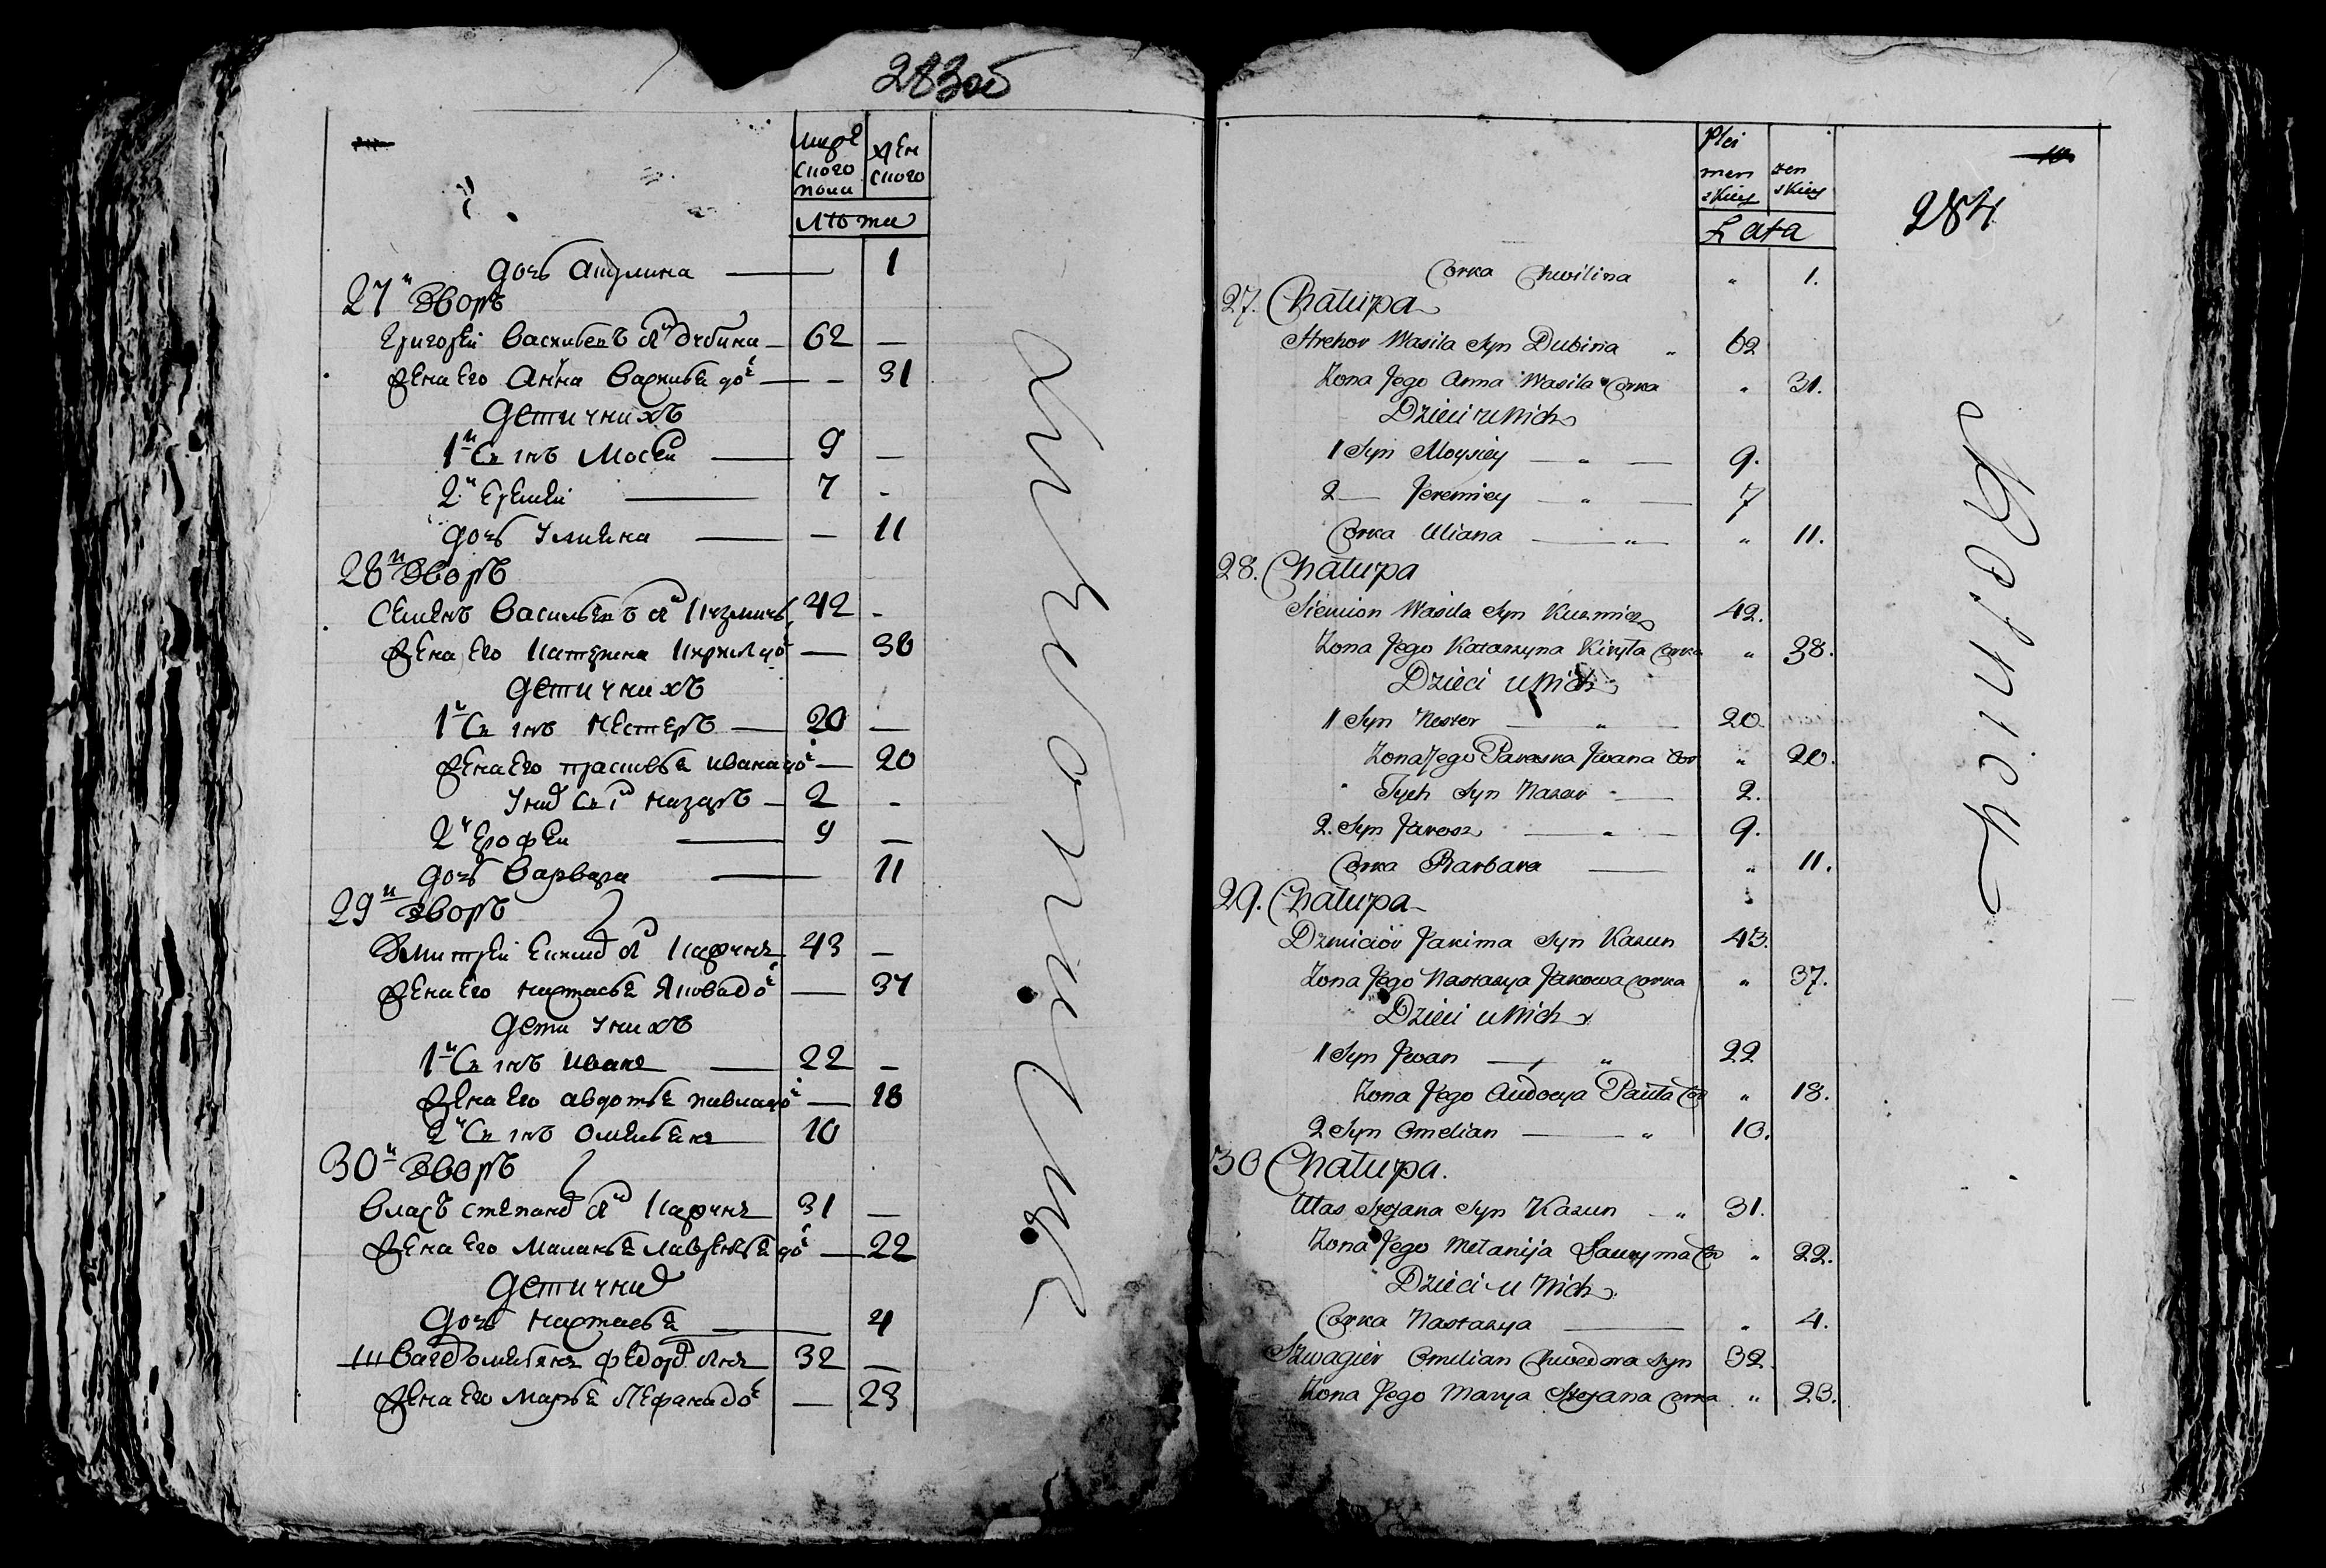 283об
муже
ского
пола
жен
ского
лѣта
дочь Акулина — 1
27й Дворъ
Григорей Васильевъ Дубина — 62 —
Жена Его Анна Василье до — 31
Дети у нихъ
1й Сынъ Мосей — 9 —
2й Еремей — 7 -
дочь Улияна — — 11
28й Дворъ
Семенъ Васильевъ 42 -
Жена Его Катерина Кирил до — 38
Дети у нихъ
1й Сынъ Нестеръ — 20 —
Жена Его Прасковья Ивана до — 20
у них Назаръ — 2 -
2й Ерофей — 9 —
дочь Варвара — 11
29й Дворъ
Дмитрей 43 —
Жена Его Настасья до — 37
Дети у нихъ
1й Сынъ Иванъ — 22 -
Жена Его Авдотья Павла до — 18
2й Сынъ Омельянъ 10
30й Дворъ
Власъ Степанов 31 —
Жена Его Маланья до — 22
Дети у них
дочь Настасья — 4
Омельянъ Федоров 32 —
Жена Его Марья до — 23
Plci
men
skiey
zen
skiey
Lata
284
Corka Chwilina „ 1.
27. Chałupa
Hrehor Wasila Syn Dubina „ 62
Zona Jego Anna Wasila Corka „ 31.
Dzieci u Nich
1 Syn Moysiey — „ — 9.
2 — Jeremiey — „ — 7
Corka Uliana — „ — „ 11.
28. Chałupa
Siemion Wasila Syn Kuzmicz 42.
Zona Jego Katarzyna Kiryła Corka „ 38.
Dzieci u Nich
1 Syn Nester — „ — 20.
Zona Jego Paraska Jwana Cor „ 20.
Tych Syn Nazar — 2.
2. Syn Jarosz — „ — 9.
Corka Barbara — „ 11.
29. Chałupa
Dzmicior Jakima Syn Kazun 43.
Zona Jego Nastazya Jakowa Corka „ 37.
Dzieci u Nich
1 Syn Jwan — „ 22
Zona Jego Audocya Pauła Cor „ 18.
2 Syn Omelian — „ 10.
30 Chałupa.
Ułas Stefana Syn Kazun — „ 31.
Zona Jego Mełanija Cor „ 22.
Dzieci u Nich
Corka Nastazya — „ 4.
Szwagier Omelian Chwedora Syn 32.
Zona Jego Marya Stefana Corka „ 23.